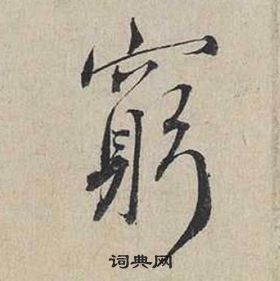 窮
词典网